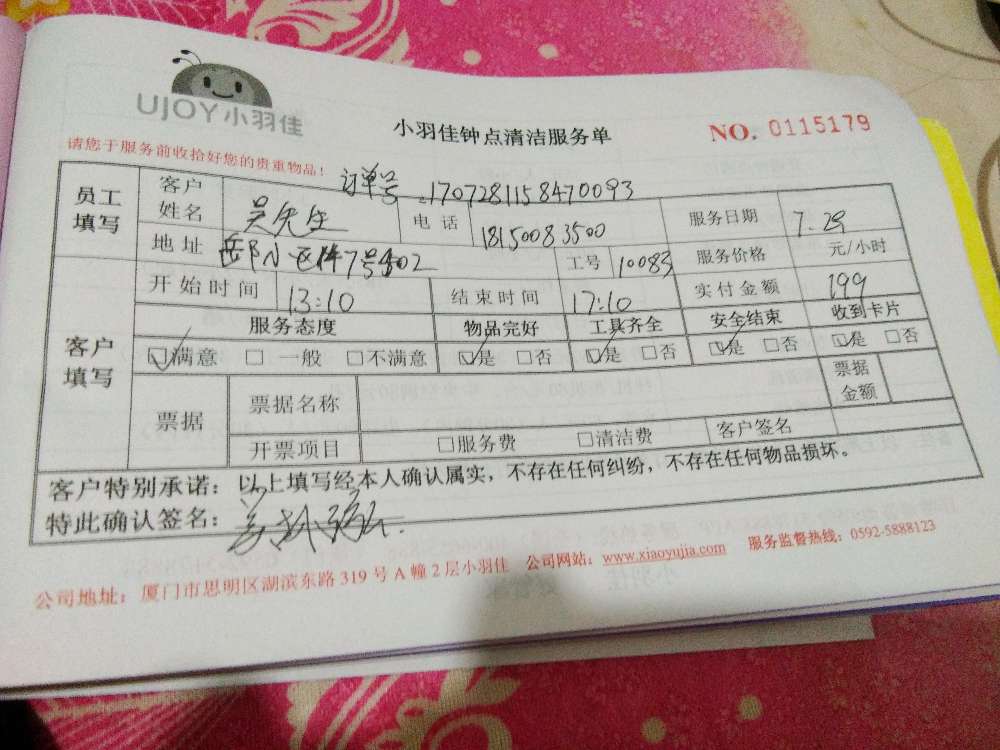 UJOY小羽佳
小羽佳钟点清洁服务单
NO. 0115179
请您于服务前收拾好您的贵重物品!
订单号:1707281158470093
员工填写 客户姓名 吴先生 电话 18150083500 服务日期 7.29
地址 7号402 工号 10083 服务价格 元/小时
客户填写 开始时间 13:10 结束时间 17:10 实付金额 199
服务态度 物品完好 工具齐全 安全结束 收到卡片
☑满意 □ 一般 □不满意 ☑是 □否 ☑是 □否 ☑是 □否 ☑是 □否
票据 票据名称 票据金额
开票项目 □服务费 □清洁费 客户签名
客户特别承诺:以上填写经本人确认属实,不存在任何纠纷,不存在任何物品损坏。
特此确认签名:
公司地址:厦门市思明区湖滨东路319号A幢2层小羽佳 公司网站:www.xiaoyujia.com 服务监督热线:0592-5888123